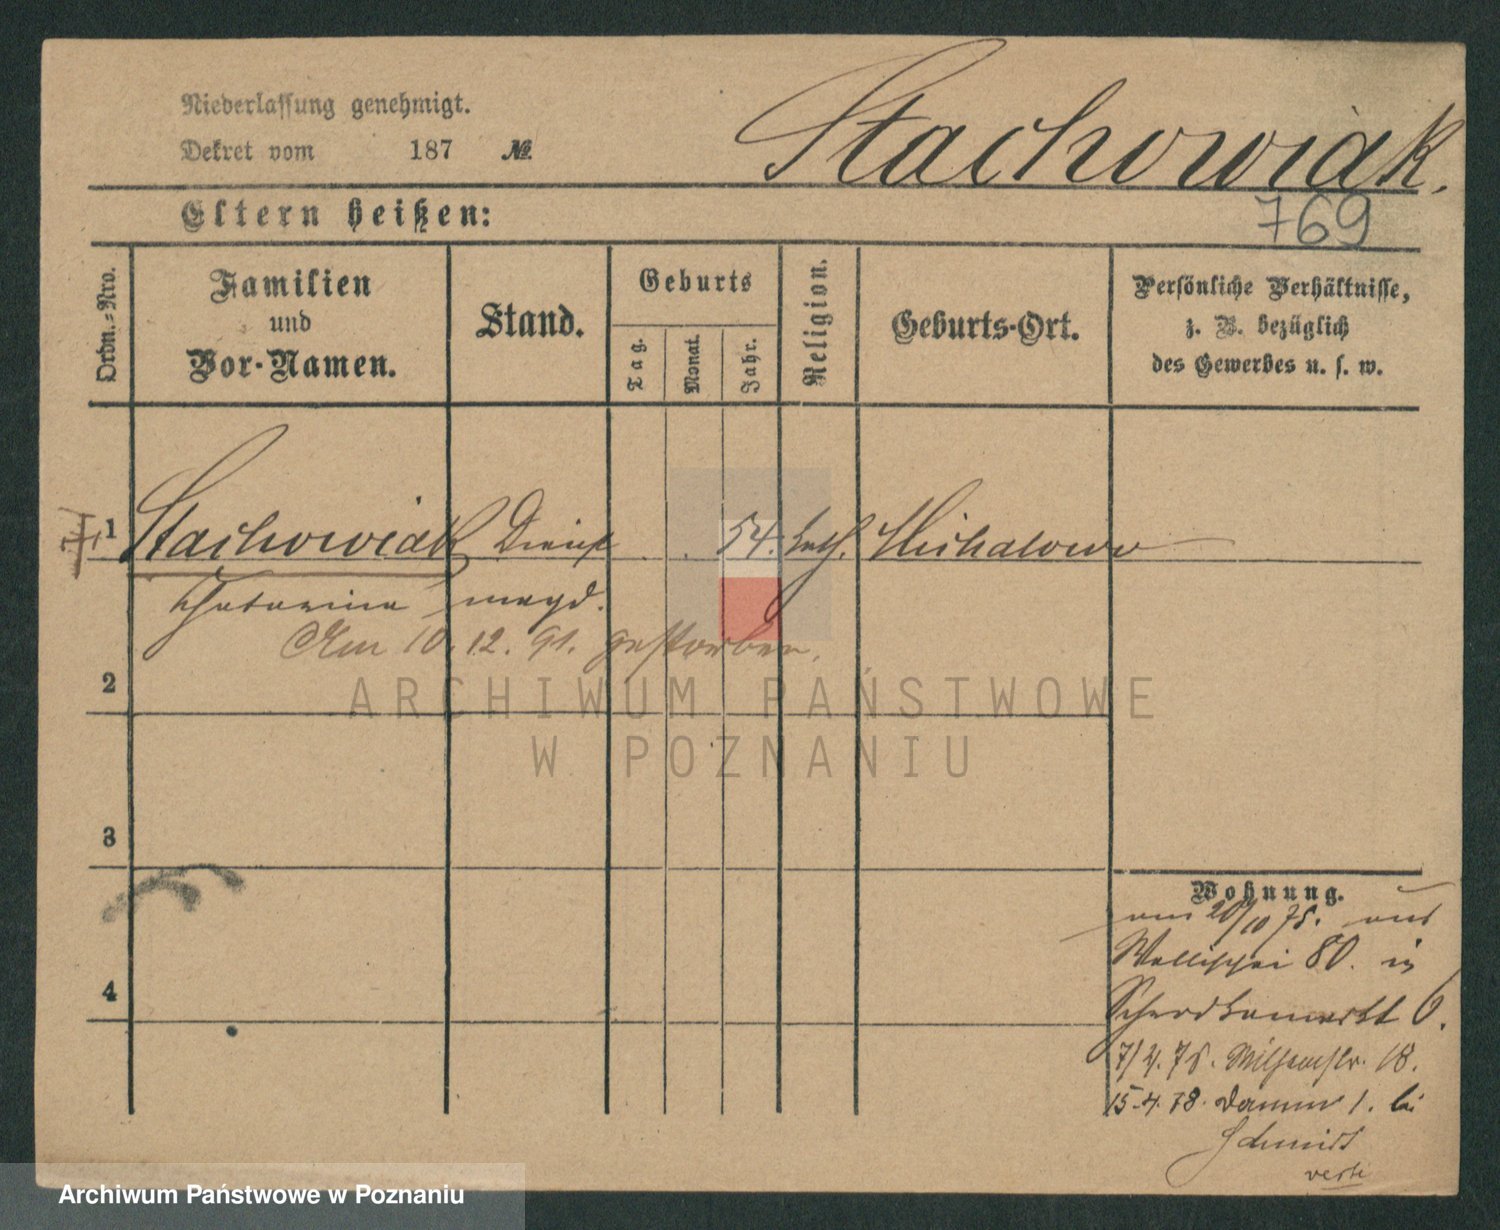 Niederlassung genehmigt.
Dekret vom 187 №
Stachowiak.
Eltern heißen:
769
Ordn.=Nro.
Familien
und
Vor-Namen.
Stand.
Geburts
Tag.
Monat.
Jahr.
Religion.
Geburts-Ort.
Persönliche Verhältnisse,
z. B. bezüglich
des Gewerbes u. s. w.
1 Stachowiak Dienst 54. kath. Michalowo
Catharina magd.
Am 10.12.91. gestorben.
2
ARCHIWUM PAŃSTWOWE
W POZNANIU
3
Wohnung.
am 20/10 75. aus
Wallischei 80. in
4
6.
7/4. 76. 18.
15-4.78. Damm 1. bei
Schmidt
verte
Archiwum Państwowe w Poznaniu